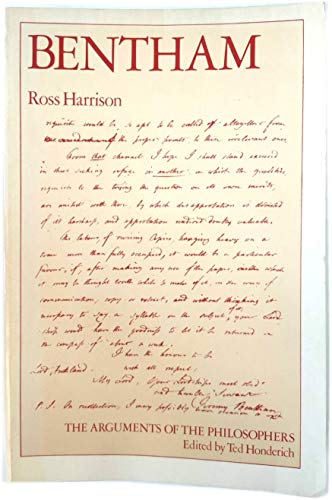 BENTHAM
Ross Harrison
requisite would be, is apt to be called off altogether from
the proper points to these irrelevant ones.
From that channel I hope I shall stand excused
in thus seeking refuge in another in which the
requisite to the trying the question on its own merits,
are united with those, by which disapprobation is divested
of its harshness, and approbation rendered doubly valuable.
The labour of revising Copies hanging heavy on a
time more than fully occupied, it would be a particular
favour, if, after making any use of the paper, 
it may be thought worth while to make of it, in the way of
communication, copy or extract, and without thinking it
necessary to say a syllable on the subject, your Lord
ship would have the goodness to let it be returned in
the compass of about a week.
I have the honour to be
with all respect,
My Lord, Your Lordship's most obed.
and humble Servant
Jeremy Bentham
P.S. On recollection, I may possibly
THE ARGUMENTS OF THE PHILOSOPHERS
Edited by Ted Honderich